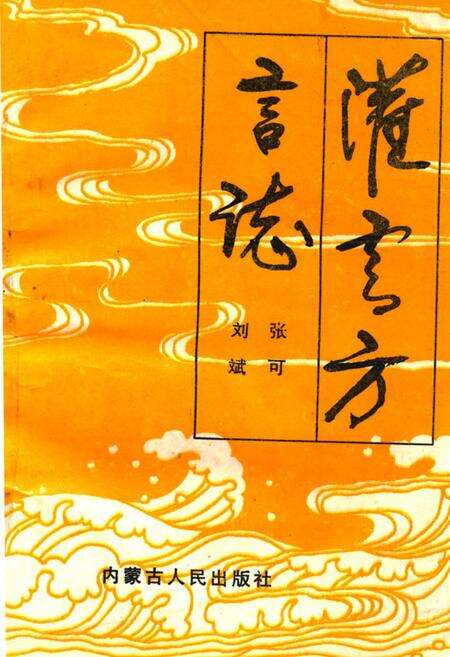 灌雲方
言誌
张可
刘斌
内蒙古人民出版社